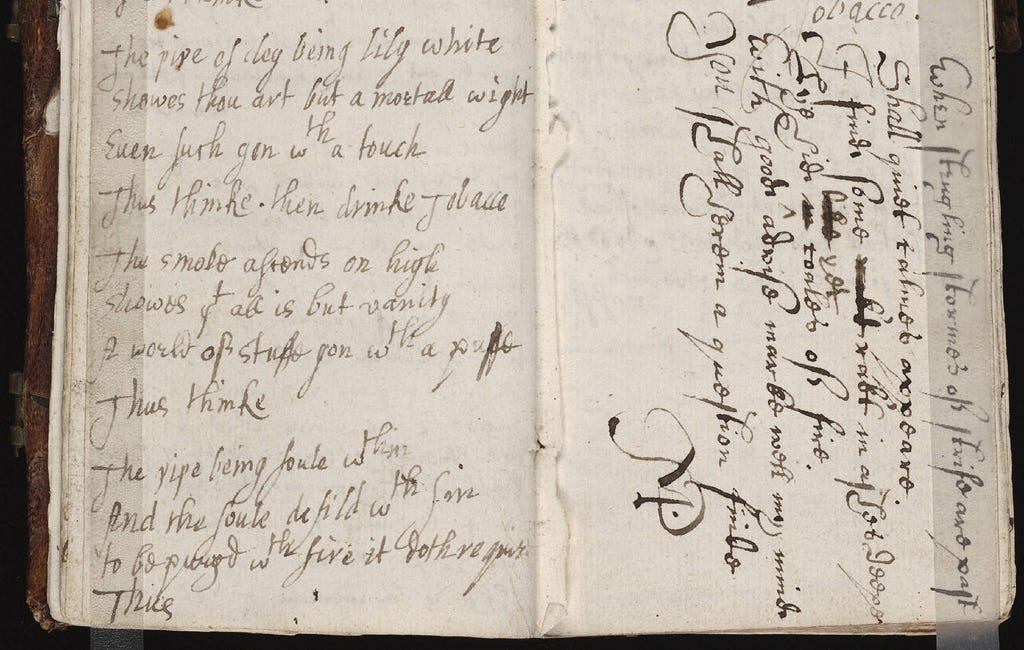 Thus thinke
The pipe of cley being lily white
showes thou art but a mortall wight
Euen such gon wth a touch
Thus thinke. then drinke Tobacco
The smoke ascends on high
showes yt all is but vanity
A world of stuffe gon wth a puffe
Thus thinke
The pipe being foule wthin
And the soule defild wth sin
to be purgd wth fire it doth requir
Thus
Tobacco.
When stingling stormes of strife are past
Shall quiet calmes appeare
I find some rakt in ashes deepe
coales of fire
With good advise marke well my minde
You shall herein a question finde